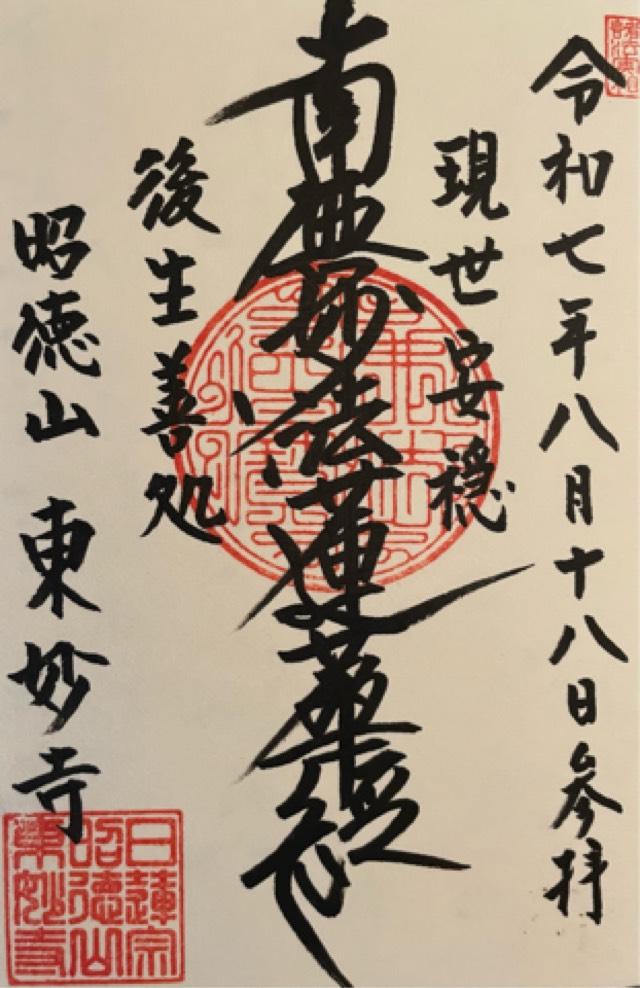 令和七年八月十八日参拝
現世安穏
南無妙法蓮華経
後生善処
昭徳山 東妙寺
日蓮宗
昭徳山
東妙寺